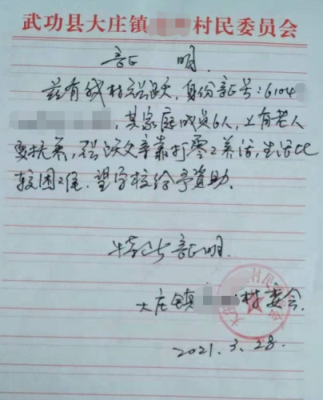 武功县大庄镇 村民委员会
证 明.
兹有我村 ,身份证号:6104
,其家庭成员6人,上有老人
要扶养, 靠打零工养活,生活比
较困难.望学校给予资助.
特此证明.
大庄镇 村委会.
2021.3.28.